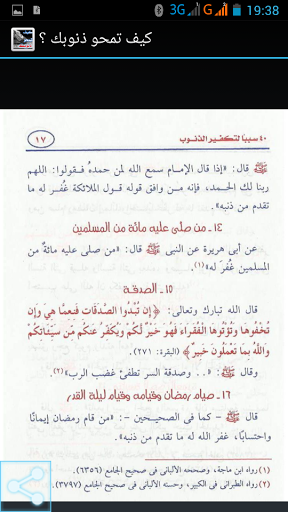 3G G 19:38
كيف تمحو ذنوبك ؟
٤٠ سبباً لتكفير الذنوب
١٧
ﷺ قال: «إذا قال الإمام سمع الله لمن حمده فقولوا: اللهم
ربنا لك الحمد، فإنه من وافق قوله قول الملائكة غُفر له ما
تقدم من ذنبه».
١٤ - من صلى عليه مائة من المسلمين
عن أبى هريرة عن النبى ﷺ قال: «من صلى عليه مائةٌ من
المسلمين غُفرَ له»(١).
١٥ - الصدقة
قال الله تبارك وتعالى: ﴿إِن تُبْدُوا الصَّدَقَاتِ فَنِعِمَّا هِيَ وَإِن
تُخْفُوهَا وَتُؤْتُوهَا الْفُقَرَاءَ فَهُوَ خَيْرٌ لَّكُمْ وَيُكَفِّرُ عَنكُم مِّن سَيِّئَاتِكُمْ
وَاللَّهُ بِمَا تَعْمَلُونَ خَبِيرٌ﴾ (البقرة: ٢٧١).
وقال ﷺ: «.. وصدقة السر تطفئ غضب الرب»(٢).
١٦ - صيام رمضان وقيامه وقيام ليلة القدر
قال ﷺ - كما فى الصحيحين -: «من قام رمضان إيمانًا
واحتسابًا، غفر الله له ما تقدم من ذنبه».
(١) رواه ابن ماجة، وصححه الألبانى فى صحيح الجامع (٦٣٥٦).
(٢) رواه الطبرانى فى الكبير، وحسنه الألبانى فى صحيح الجامع (٣٧٩٧).